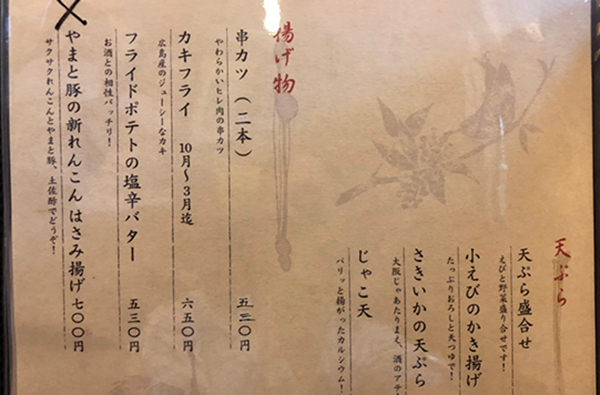 天ぷら
天ぷら盛合せ
えびと野菜盛り合せです！
小えびのかき揚げ
たっぷりおろしと天つゆで！
さきいかの天ぷら
大阪じゃあたりまえ、酒のアテ！
じゃこ天
パリッと揚がったカルシウム！
揚げ物
串カツ（二本） 五三〇円
やわらかいヒレ肉の串カツ
カキフライ 10月〜3月迄 六五〇円
広島産のジューシーなカキ
フライドポテトの塩辛バター 五三〇円
お酒との相性バッチリ！
やまと豚の新れんこんはさみ揚げ 七〇〇円
サクサクれんこんとやまと豚、土佐酢でどうぞ！